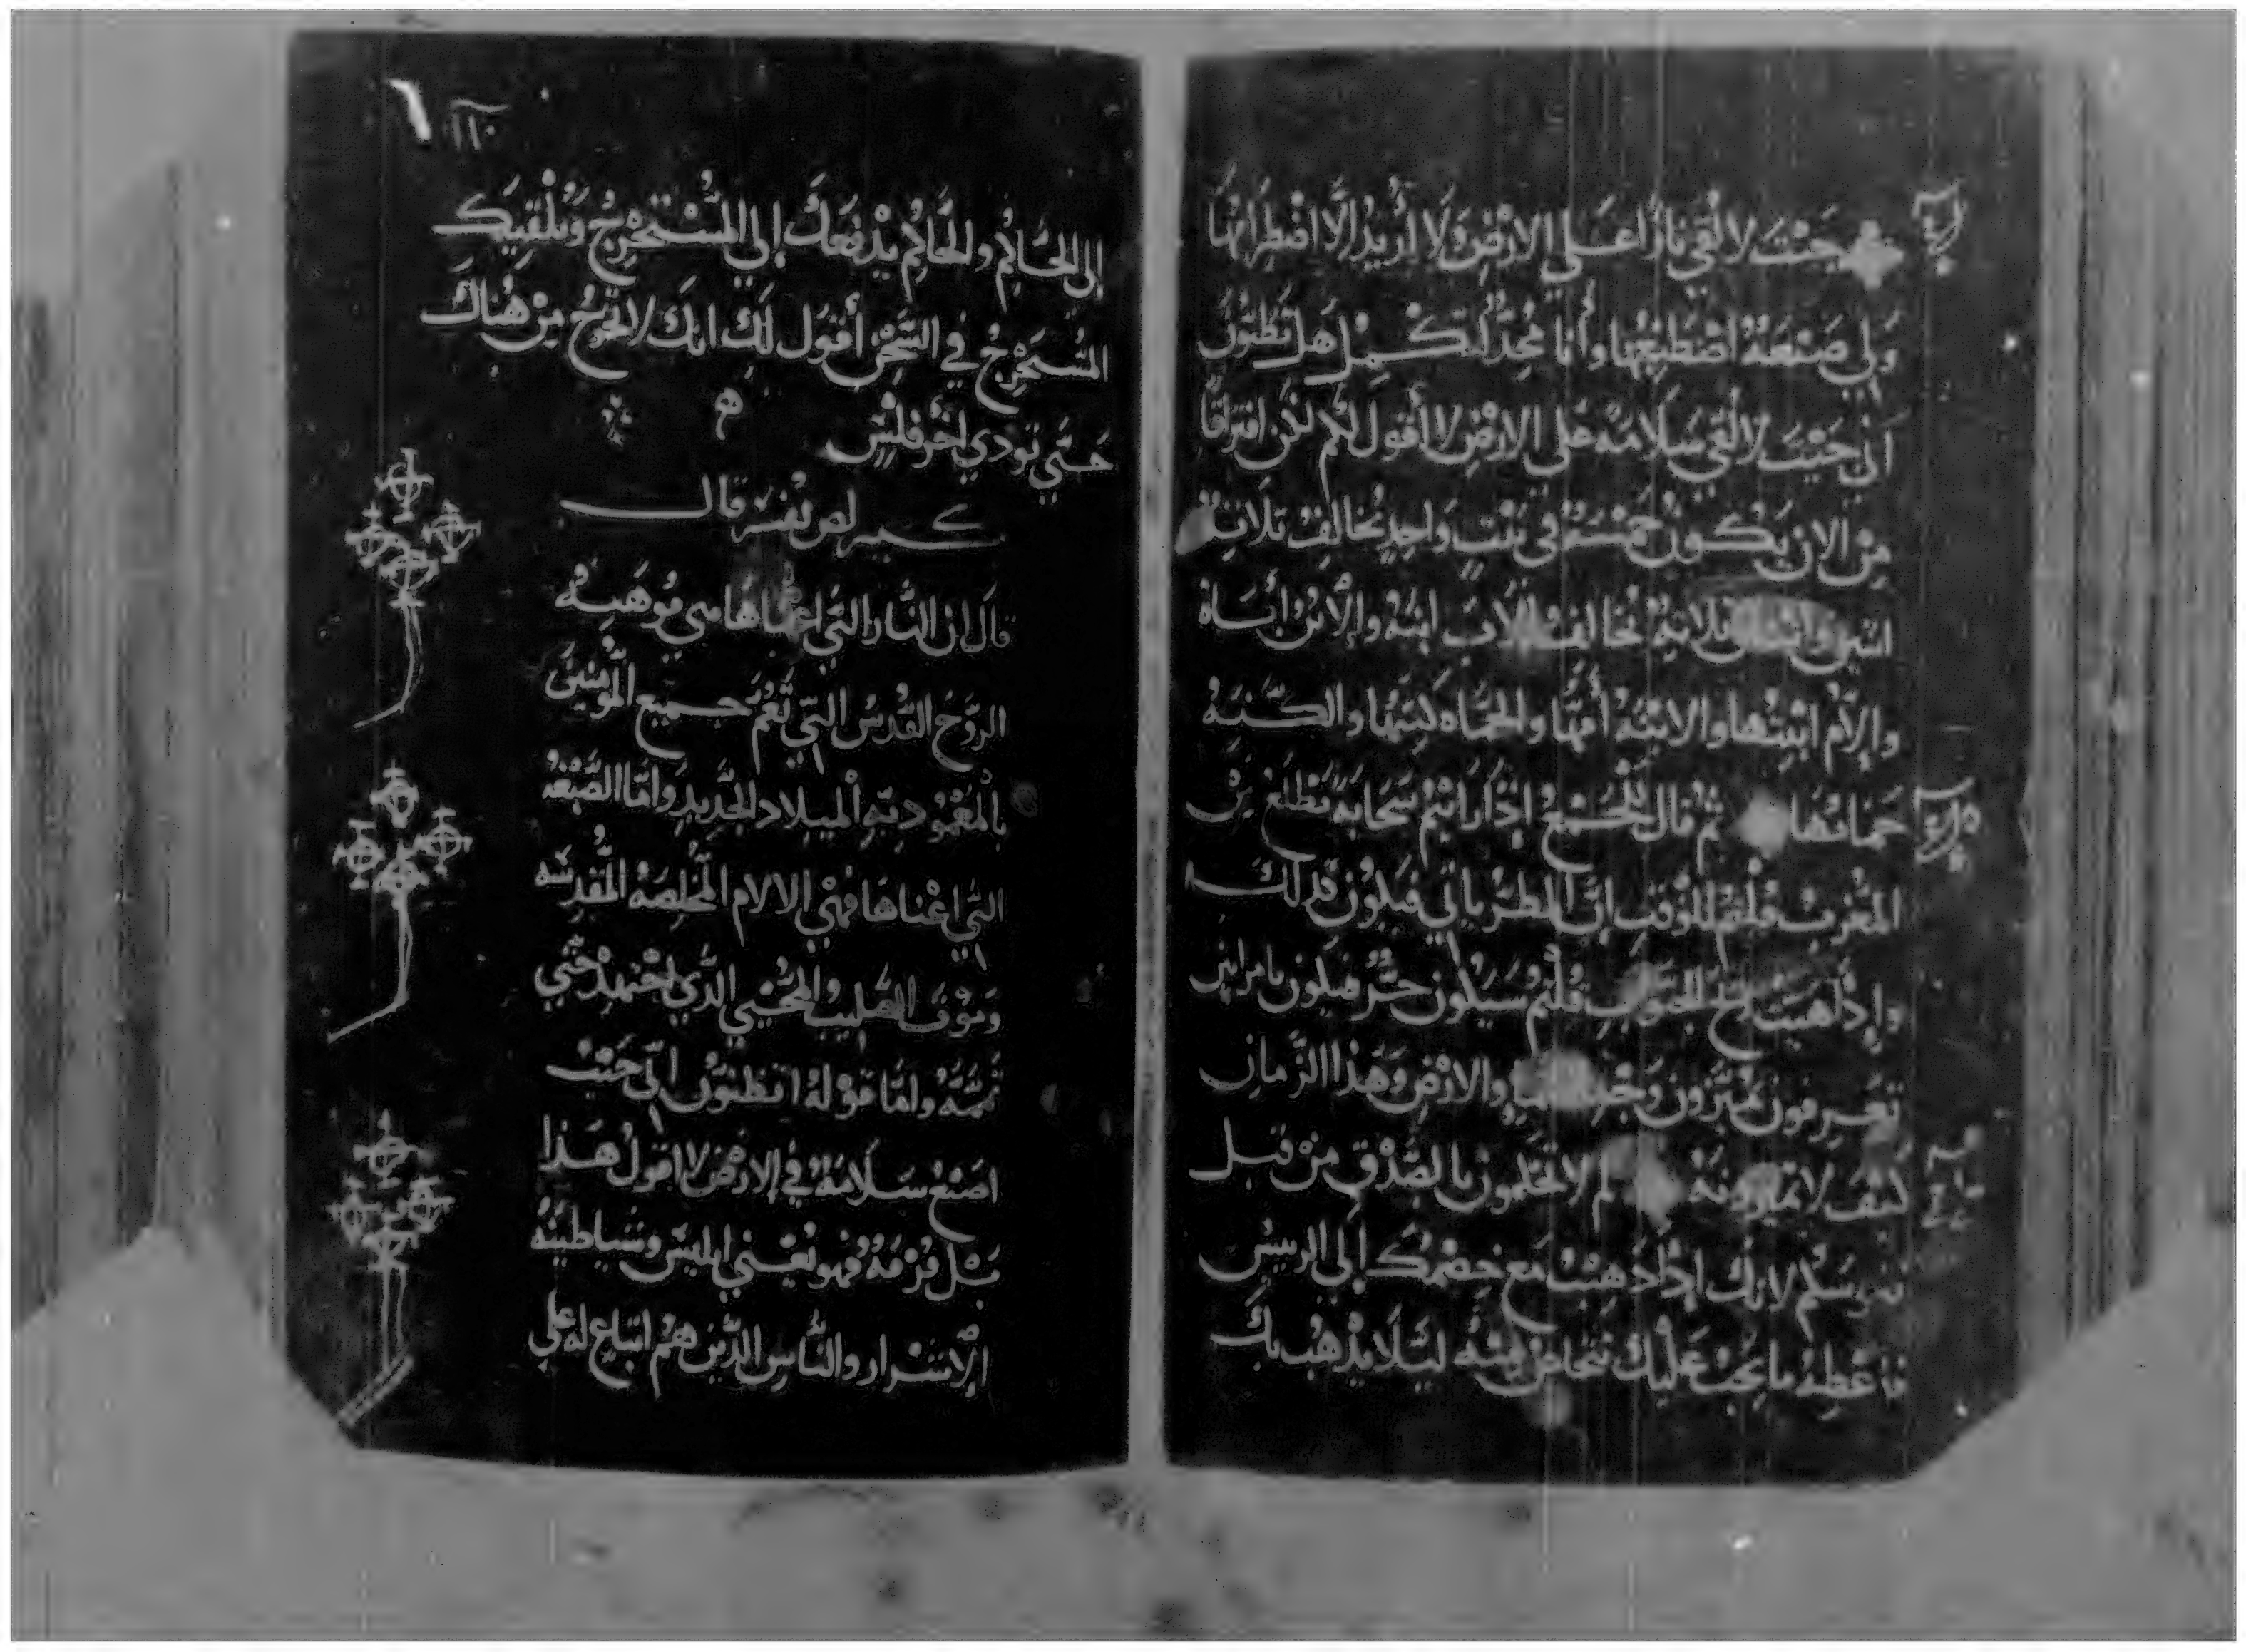 جيت لالقي نارًا على الارض ولا أريد الّا اضطرامها
ولي صبغة اصطبغها وأنا مجدّ لتكمل هل تظنون
أني جيت لالقي سلامه على الارض لا أقول لكم لكن افتراقًا
من الان يكون خمسة في بيت واحد يخالف ثلاثة
اثنين واثنان ثلاثة يخالف الاب ابنه والابن أباه
والام ابنتها والابنة أمّها والحماه كنتها والكنه
حماتها ثم قال للجمع إذا رأيتم سحابة تطلع من
المغرب قلتم للوقت إن المطر ياتي فيكون كذلك
وإذا هبت ريح الجنوب قلتم سيكون حرّ فيكون يا مرايين
تعرفون تميّزون وجه السما والارض وهذا الزمان
كيف لا تميزونه لم لا تحكمون بالصدق من قبل
نفوسكم لانك إذا ذهبت مع خصمك إلى الرييس
فاعطه ما يجب عليك تتخلص منه ليلا يذهب بك
١١٠
إلى الحاكم والحاكم يدفعك إلى المستخرج ويلقيك
المستخرج في السجن أقول لك انك لا تخرج من هناك
حتّى تودي اخر فلس
كيرلص يفسر قال
قال ان النار التي اعناها هي موهبة
الروح القدس التي تعم جميع المومنين
بالمعمودية الميلاد الجديد وامّا الصبغه
التي اعناها فهي الالام المخلصة المقدسه
وموت الصليب المحيي الذي اجتهد حتّى
تممه وامّا قوله اتظنون انّي جيت
اصنع سلامة في الارض لا اقول هذا
بل فرقة فهو يعني ابليس وشياطينه
الاشرار والناس الذين هم اتباع له على